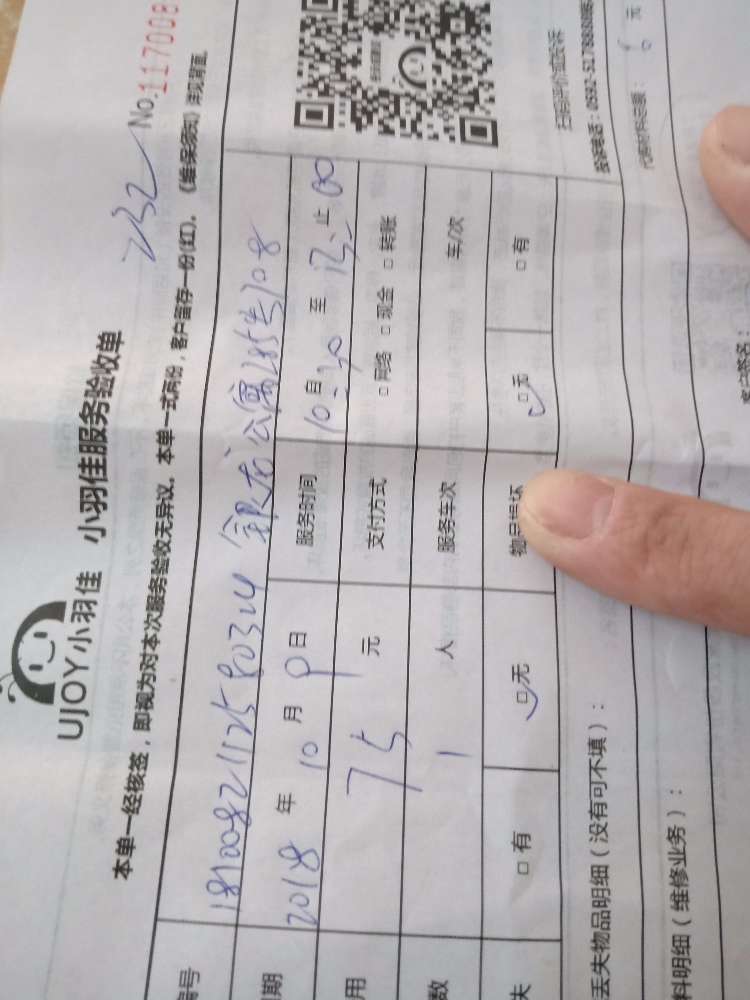 UJOY小羽佳 小羽佳服务验收单
232 No.117008
本单一经核签，即视为对本次服务验收无异议。本单一式两份，客户留存一份(红)。《维保须知》详见背面。
编号 银龙公寓285生108
期 2018年10月9日 服务时间 10自:30至13:止00
用 75元 支付方式 □网络 □现金 □转账
数 1人 服务车次 车/次
失 □有 □无 物品损坏 □无 □有
丢失物品明细（没有可不填）：
料明细（维修业务）：
扫码评价或投诉
客户签名：
元